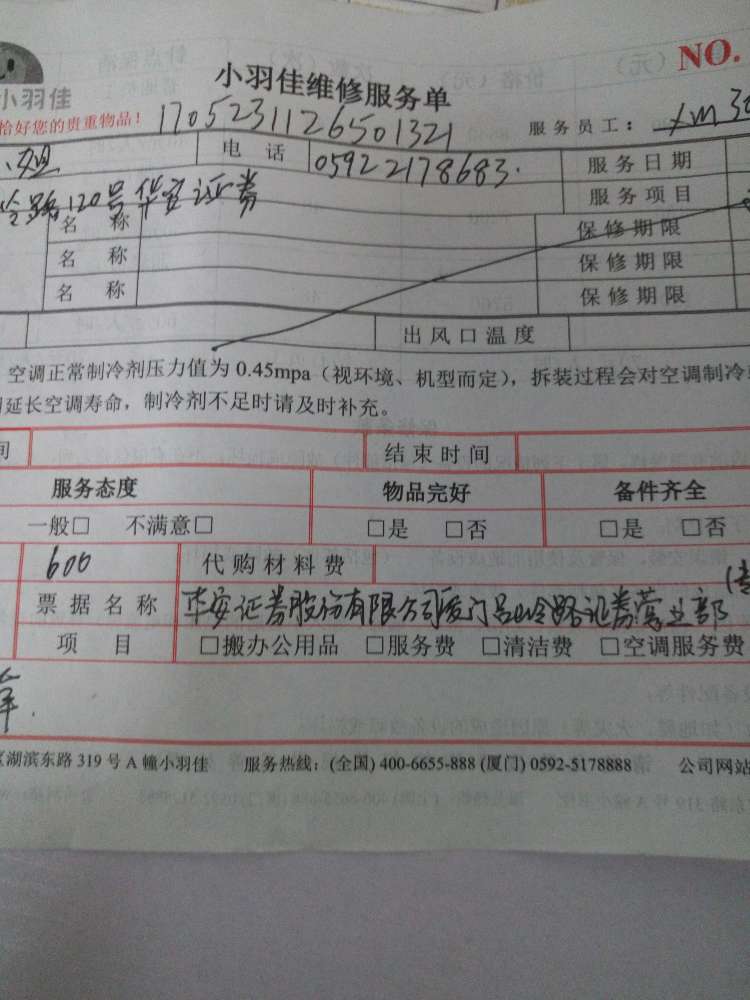 NO.
小羽佳维修服务单
小羽佳
恰好您的贵重物品！ 1705231126501321 服务员工：
小姐 电话 05922178683. 服务日期
岭路120号华安证券 服务项目
名称 保修期限
名称 保修期限
名称 保修期限
出风口温度
空调正常制冷剂压力值为 0.45mpa（视环境、机型而定），拆装过程会对空调制冷
延长空调寿命，制冷剂不足时请及时补充。
间 结束时间
服务态度 物品完好 备件齐全
一般□ 不满意□ □是 □否 □是 □否
600 代购材料费
票据名称 华安证券股份有限公司厦门吕岭路证券营业部
项目 □搬办公用品 □服务费 □清洁费 □空调服务费
区湖滨东路 319 号 A 幢小羽佳 服务热线：(全国) 400-6655-888 (厦门) 0592-5178888 公司网站